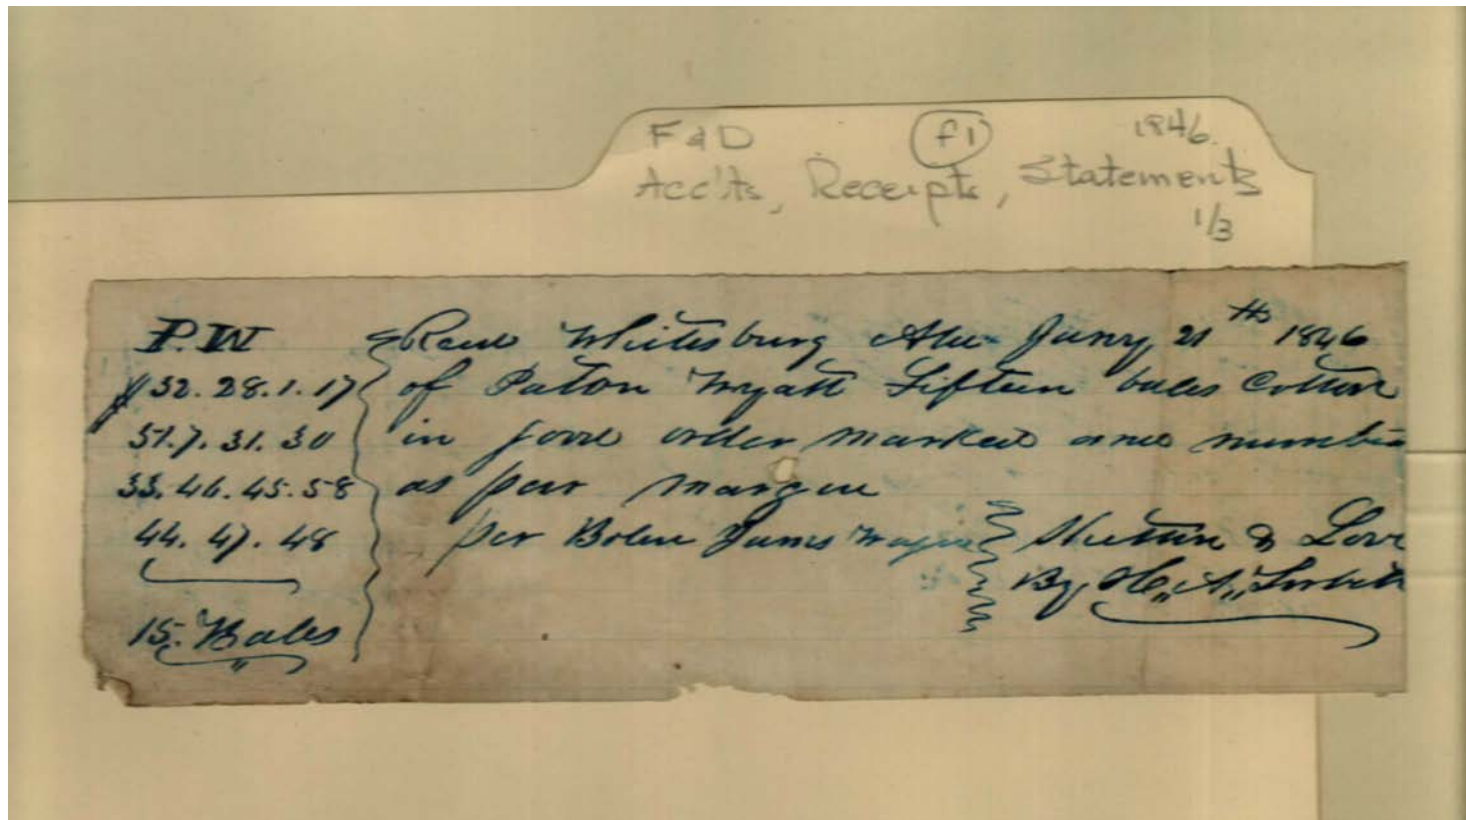 F & D f1 1846.
Acc'ts, Receipts, Statements
1/3
P.W
32. 28. 1. 17
51. 7. 31. 30
33. 46. 45. 58
44. 47. 48
15. Bales
Recd Whitesburg Ala Jany 21th 1846
of Paton Wyatt Fifteen bales Cotton
in good order marked and number
as per margin
per James & Love
By H,, A,,